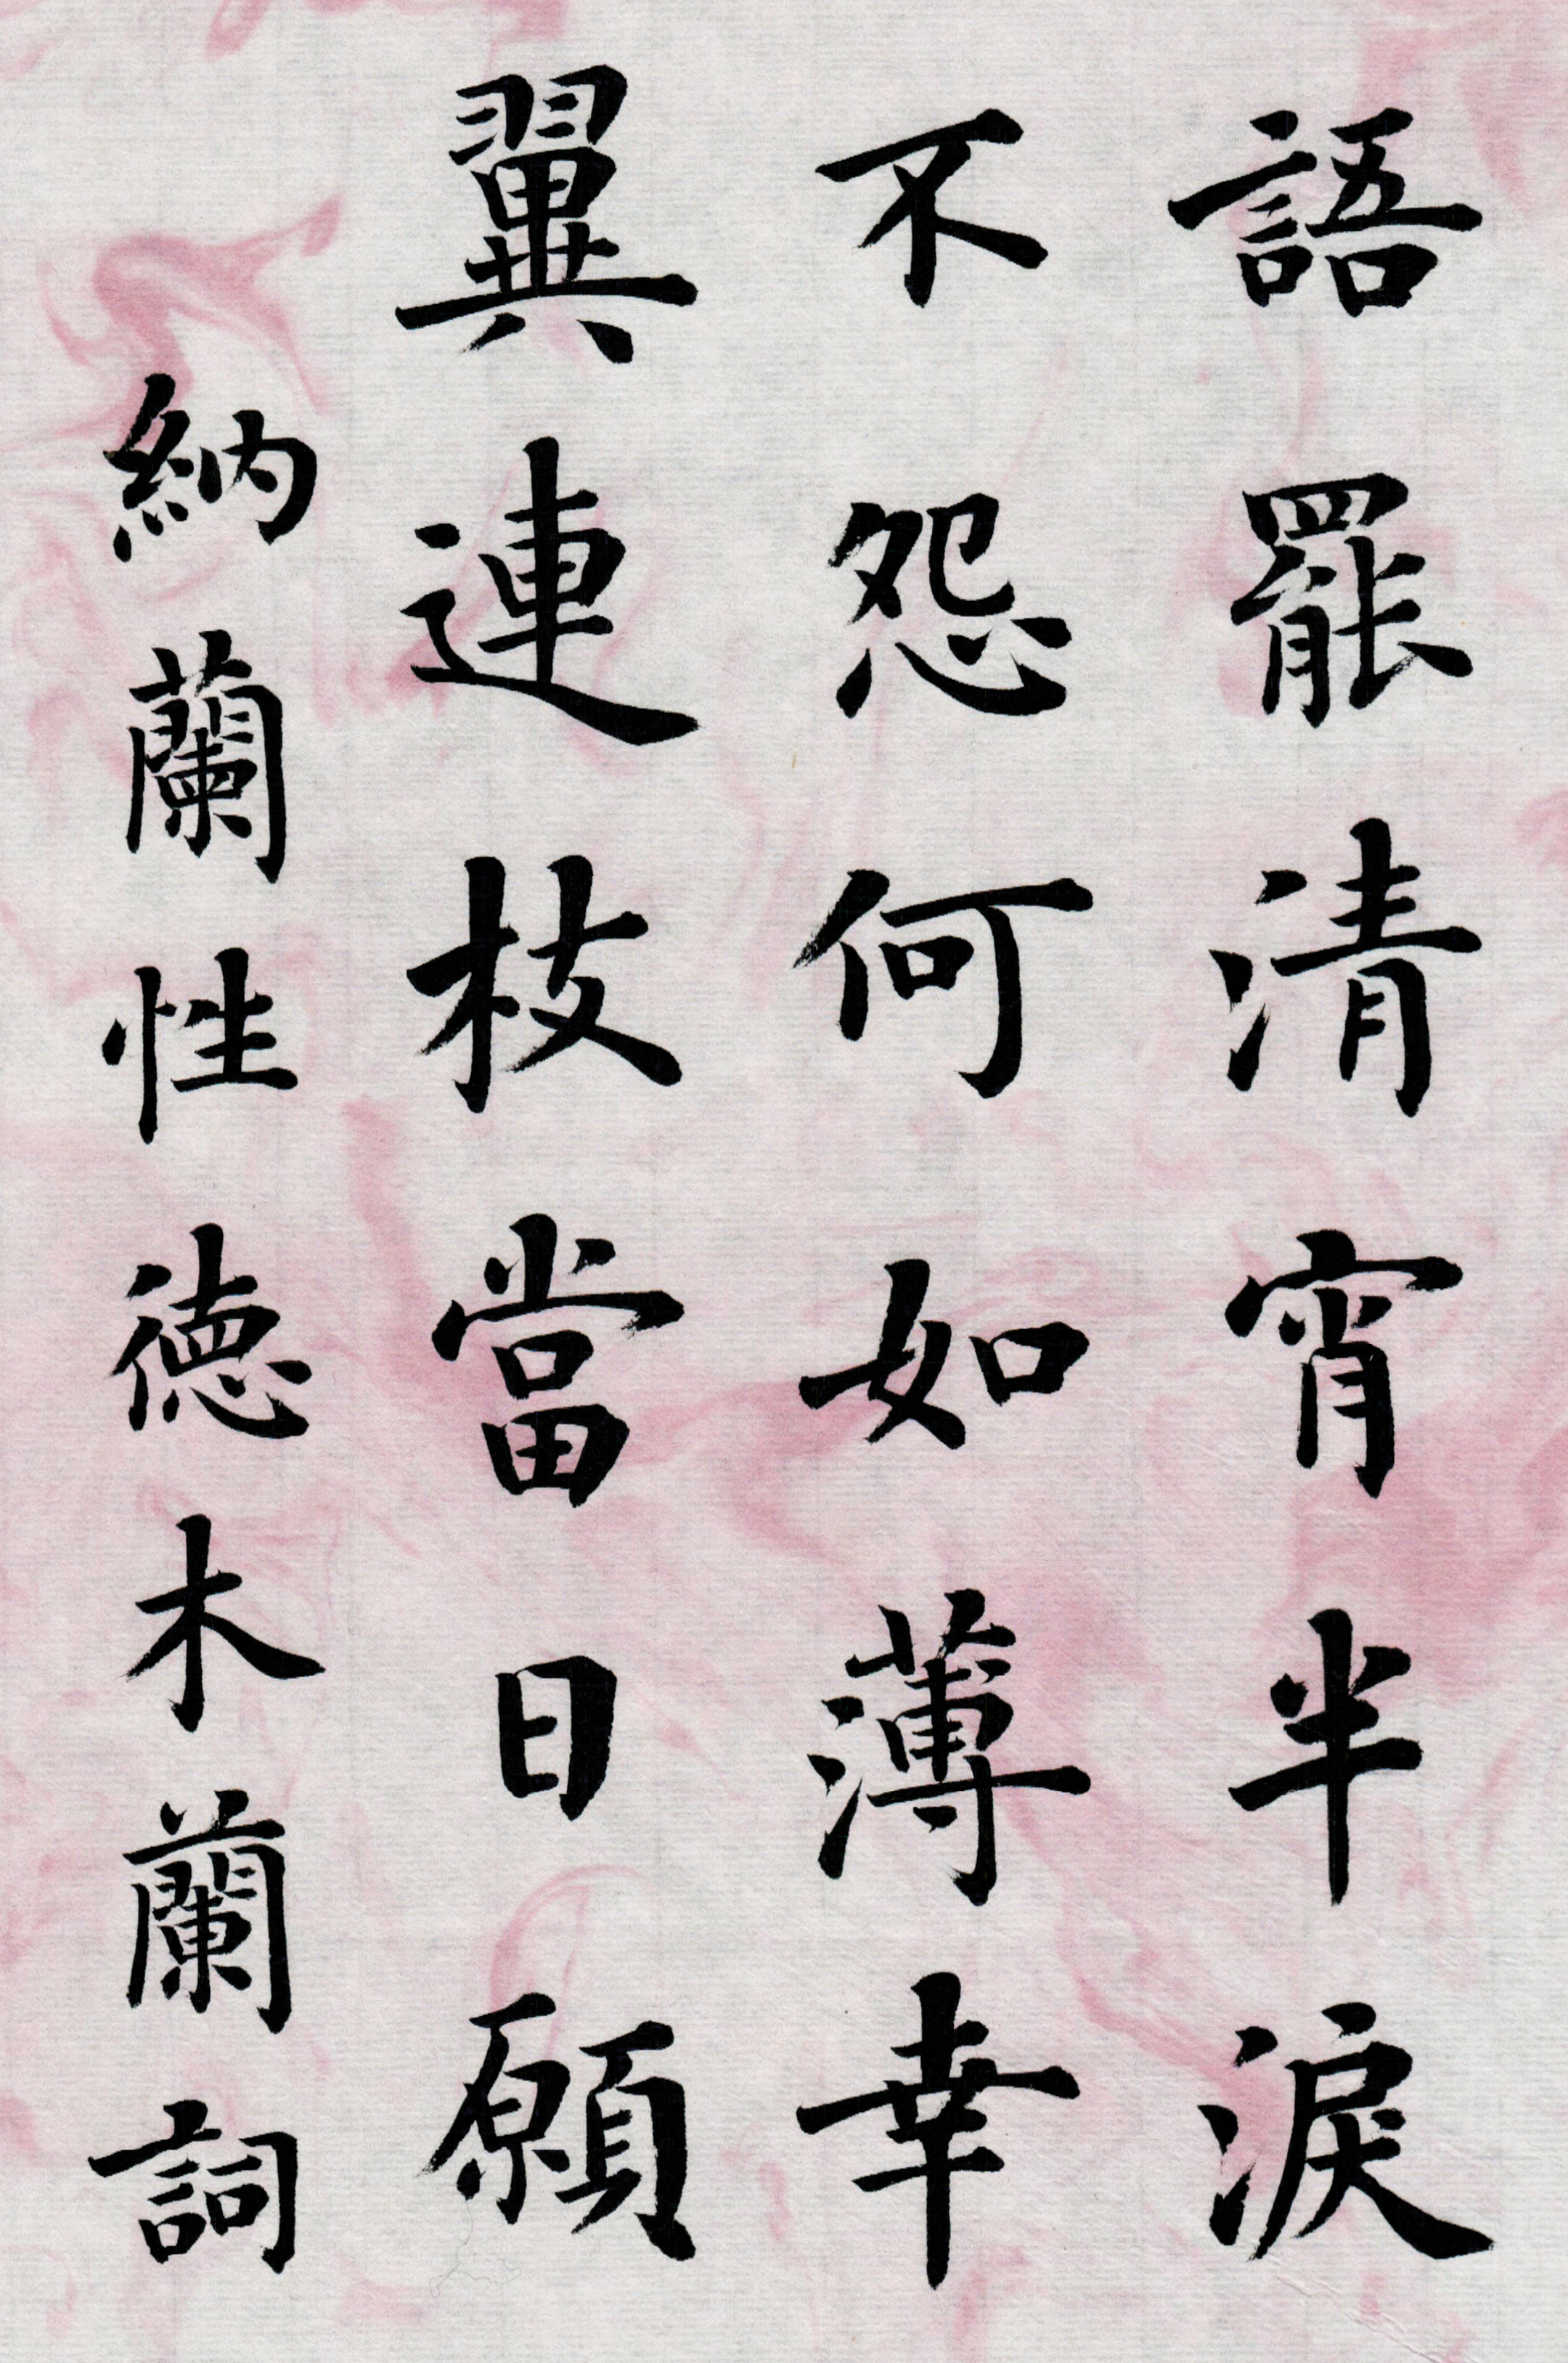 語罷清宵半淚
不怨何如薄幸
翼連枝當日願
納蘭性德木蘭詞